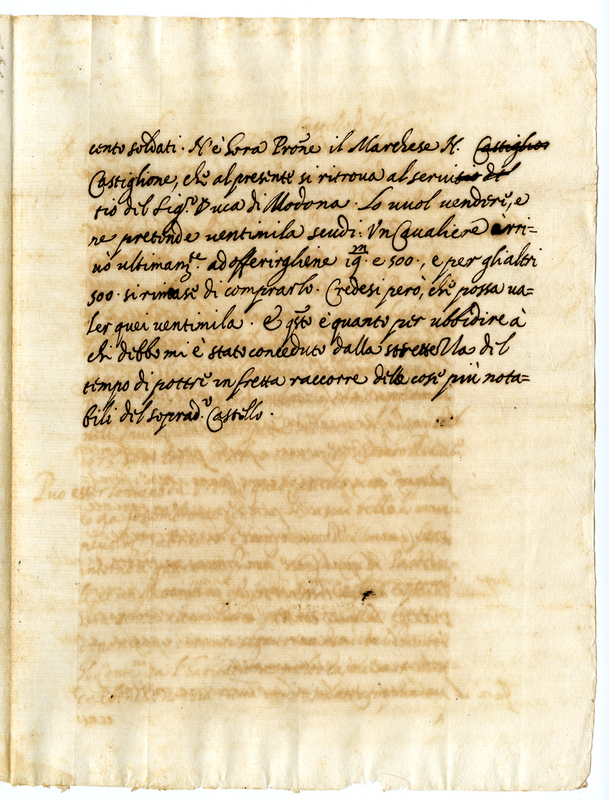 cento soldati. N'è hora Prōne il Marchese N. Castiglion
Castiglione, che al presente si ritrova al servitio del
tio del Sig.r Duca di Modona. Lo vuol vendere, e
ne pretende ventimila scudi. Un Cavaliere arri=
vò ultimam.te ad offerirgliene 19.m e 500., e per gli altri
500. si rimase di comprarlo. Credesi però, che possa va=
ler quei ventimila. E q̄sto è quanto per ubbidire à
chi debbo mi è stato conceduto dalla strettezza del
tempo di potere in fretta raccorre delle cose più nota=
bili del soprad.o Castello.